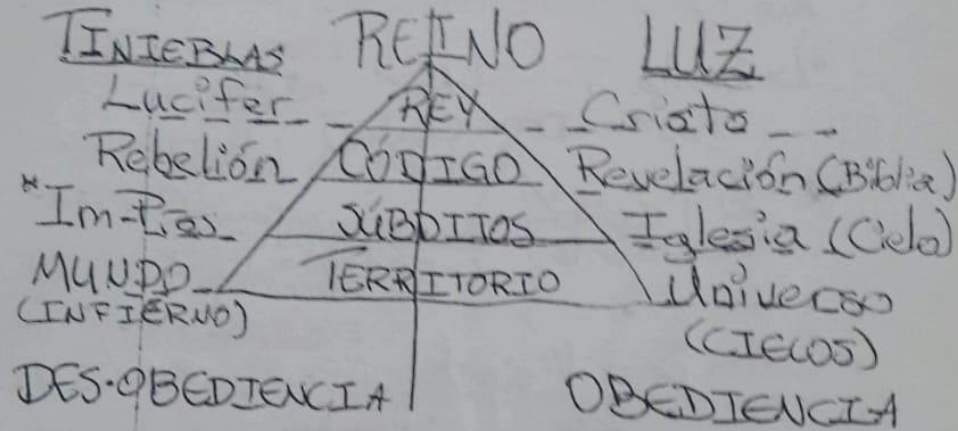 TINIEBLAS REINO LUZ
Lucifer REY Cristo
Rebelión CÓDIGO Revelación (Biblia)
*Im-Píos SÚBDITOS Iglesia (Cielo)
MUNDO TERRITORIO Universo
(INFIERNO) (CIELOS)
DES-OBEDIENCIA OBEDIENCIA